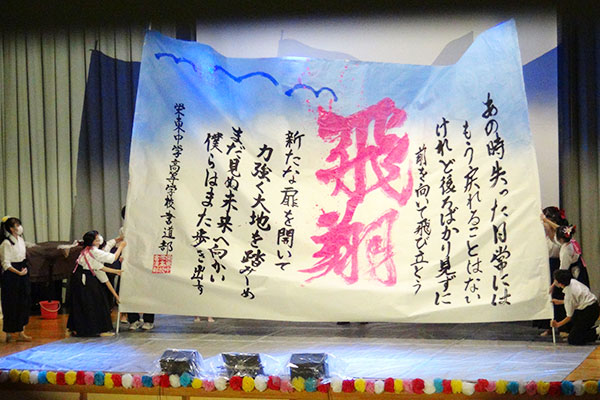 あの時失った日常には
もう戻れることはない
けれど後ろばかり見ずに
前を向いて飛び立とう
飛翔
新たな扉を開いて
力強く大地を踏みしめ
まだ見ぬ未来へ向かい
僕らはまた歩き出す
栄東中学高等学校書道部